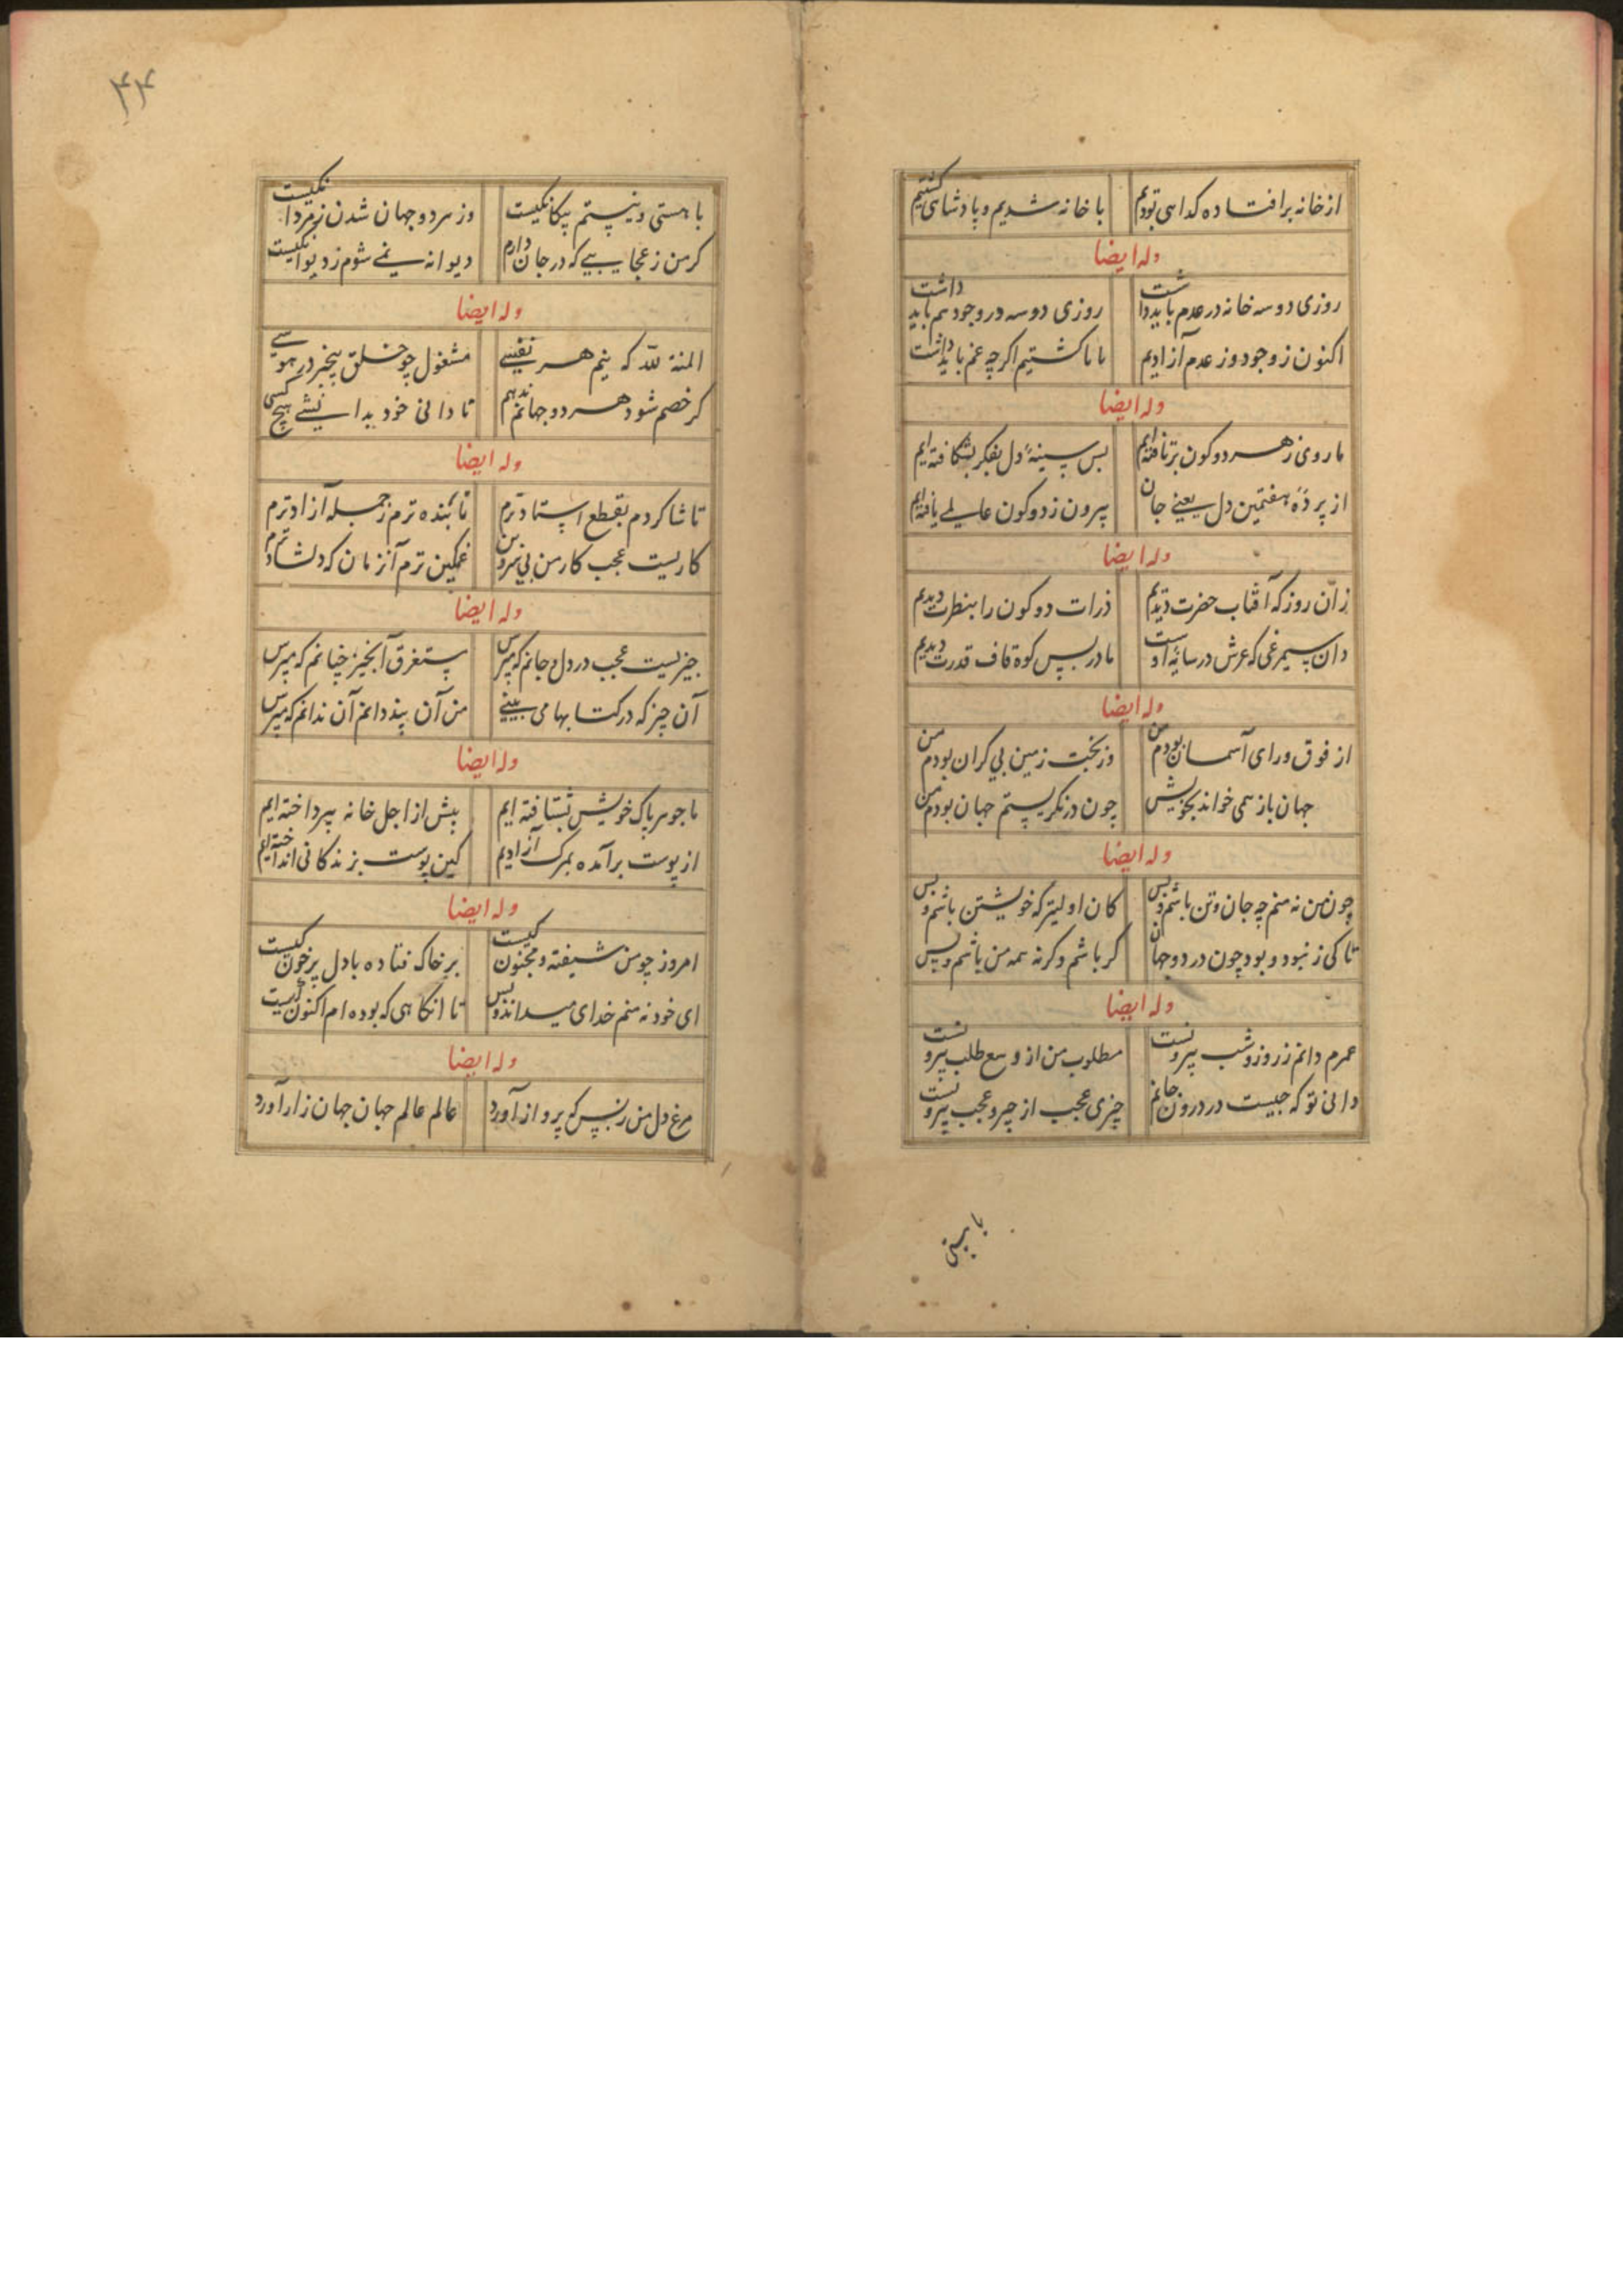 از خانه برافتاده کدایی بودیم با خانه شدیم و پادشاهی کشتیم
وله ایضا
روزی دو سه خانه در عدم باید داشت روزی دو سه در وجود هم باید داشت
اکنون ز وجود وز عدم آزادیم ما ما کشتیم اکرچه غم باید داشت
وله ایضا
ما روی ز هر دو کون برتافته‌ایم بس سینهٔ دل بفکر بشکافته‌ایم
از پردهٔ هفتمین دل یعنی جان بیرون ز دو کون عالمی یافته‌ایم
وله ایضا
زان روز که آفتاب حضرت دیدیم ذرات دو کون را بنظرت دیدیم
وان سیمرغی که عرش در سایهٔ اوست ما در پس کوه قاف قدرت دیدیم
وله ایضا
از فوق ورای آسمان بودم من وز تحت زمین بی کران بودم من
جهان باز همی خواند بخویش چون درنکریستم جهان بودم من
وله ایضا
چون من نه منم چه جان و تن باشم و بس کان اولیتر که خویشتن باشم و بس
تا کی ز نبود و بود چون در دو جهان کر باشم وکرنه همه من باشم و بس
وله ایضا
عمرم دانم ز روز و شب بیرونست مطلوب من از وسع طلب بیرونست
دانی تو که چیست در درون جانم چیزی عجب از چیز و عجب بیرونست
با هستی
۴۴
با هستی و نیستیم بیکانکیست وز هر دو جهان شدن ز مردانکیست
کر من ز عجایبی که در جان دارم دیوانه نمی شوم ز دیوانکیست
وله ایضا
المنة لله که نیم هر نفسی مشغول چو خلق بیخبر در هوسی
کر خصم شود هر دو جهانم ندهم تا دانی خود بداینشی هیچ کسی
وله ایضا
تا شاکردم بقطع استادترم تا بنده ترم ز جمله آزادترم
کاریست عجب کار من بی سر و بن غمکین ترم آنزمان که دلشادترم
وله ایضا
چیزیست عجب در دل و جانم که مپرس مستغرق آنچیز چنانم که مپرس
آن چیز که در کتابها می بینی من آن بندانم آن ندانم که مپرس
وله ایضا
ما جوهر پاک خویش بشتافته ایم پیش از اجل خانه بپرداخته ایم
از پوست برآمده بمرک آزادیم کین پوست بزندکانی انداخته‌ایم
وله ایضا
امروز چو من شیفته و مجنون کیست بر خاک فتاده با دل پر خون کیست
ای خود نه منم خدای میداند و بس تا انکاهی که بوده ام اکنون چیست
وله ایضا
مرغ دل من ز بس که پرواز آورد عالم عالم جهان جهان زار آورد